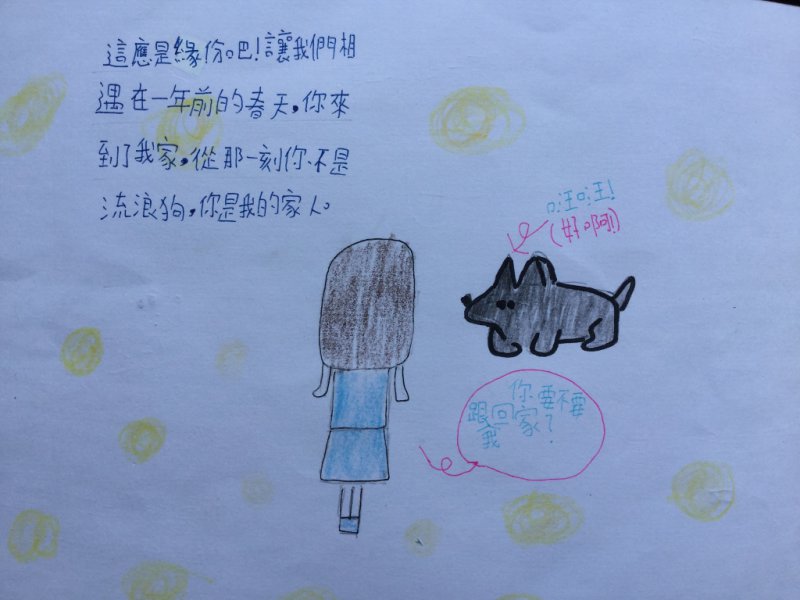 這應是緣份吧!讓我們相
遇在一年前的春天,你來
到了我家,從那一刻你不是
流浪狗,你是我的家人。
汪汪!
(好啊!)
你要不要
跟回家?
我